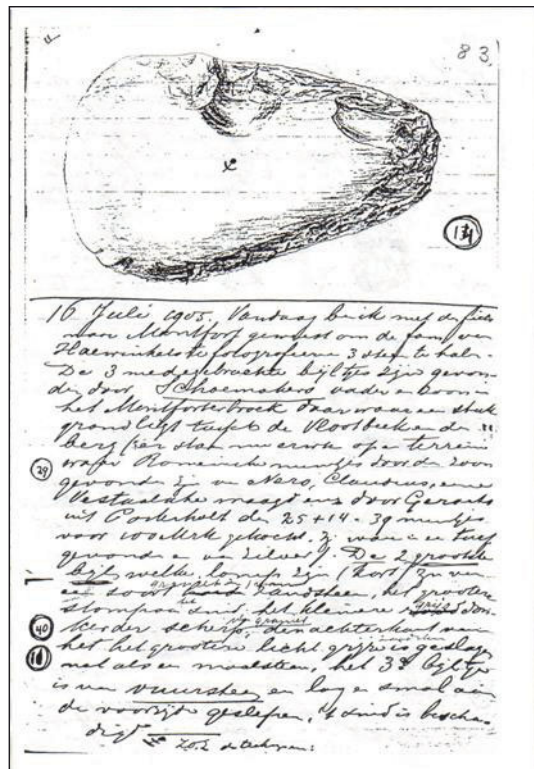 83
134
16 Juli 1905. Vandaag ben ik met de fiets
naar Montfort geweest om de fam. van
Haewinkel te fotografeeren 3 sten te halen.
De 3 medegebrachte bijltjes zijn gevon-
den door Schoemakers vader en zoon in
het Montforterbroek daar waar een stuk
grond ligt tusschen de Vlootbeek en de
berg (er staan nu erwten op 't terrein
waar Romeinsche muntjes door den zoon
29
gevonden zijn van Nero, Claudius, eene
Vestaalsche maagd enz door Geraets
uit Posterholt die 25 + 14 = 39 muntjes
voor 100 Mrk gekocht. Zij waren in turf
gevonden en van zilver). De 2 grootste
bijls welke lomp zijn (kort) zijn van
een soort zandsteen, het grootere
stomp aan snid, het kleinere is grijs don-
40
kerder scherp, den achterkant van
11
het grootere licht grijze is geslagen
net als een maalsteen, het 3e bijltje
is van vuursteen en lang en smal aan
de voorzijde geslepen, 't snid is bescha-
digd